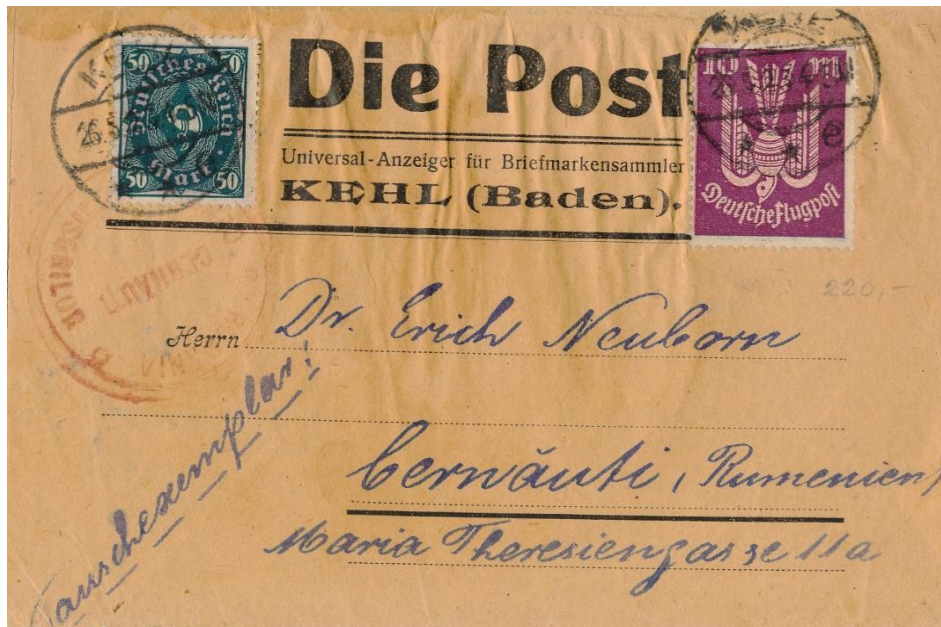 50 50
Deutsches Reich
Mark
50 50
KEHL
Die Post
Universal-Anzeiger für Briefmarkensammler
KEHL (Baden).
10 M
Deutsche Flugpost
e
220,-
CERNĂUȚI
Herrn Dr. Erich Neuborn
Tauschexemplar!
Cernăuti, Rumenien
Maria Theresiengasse 11a